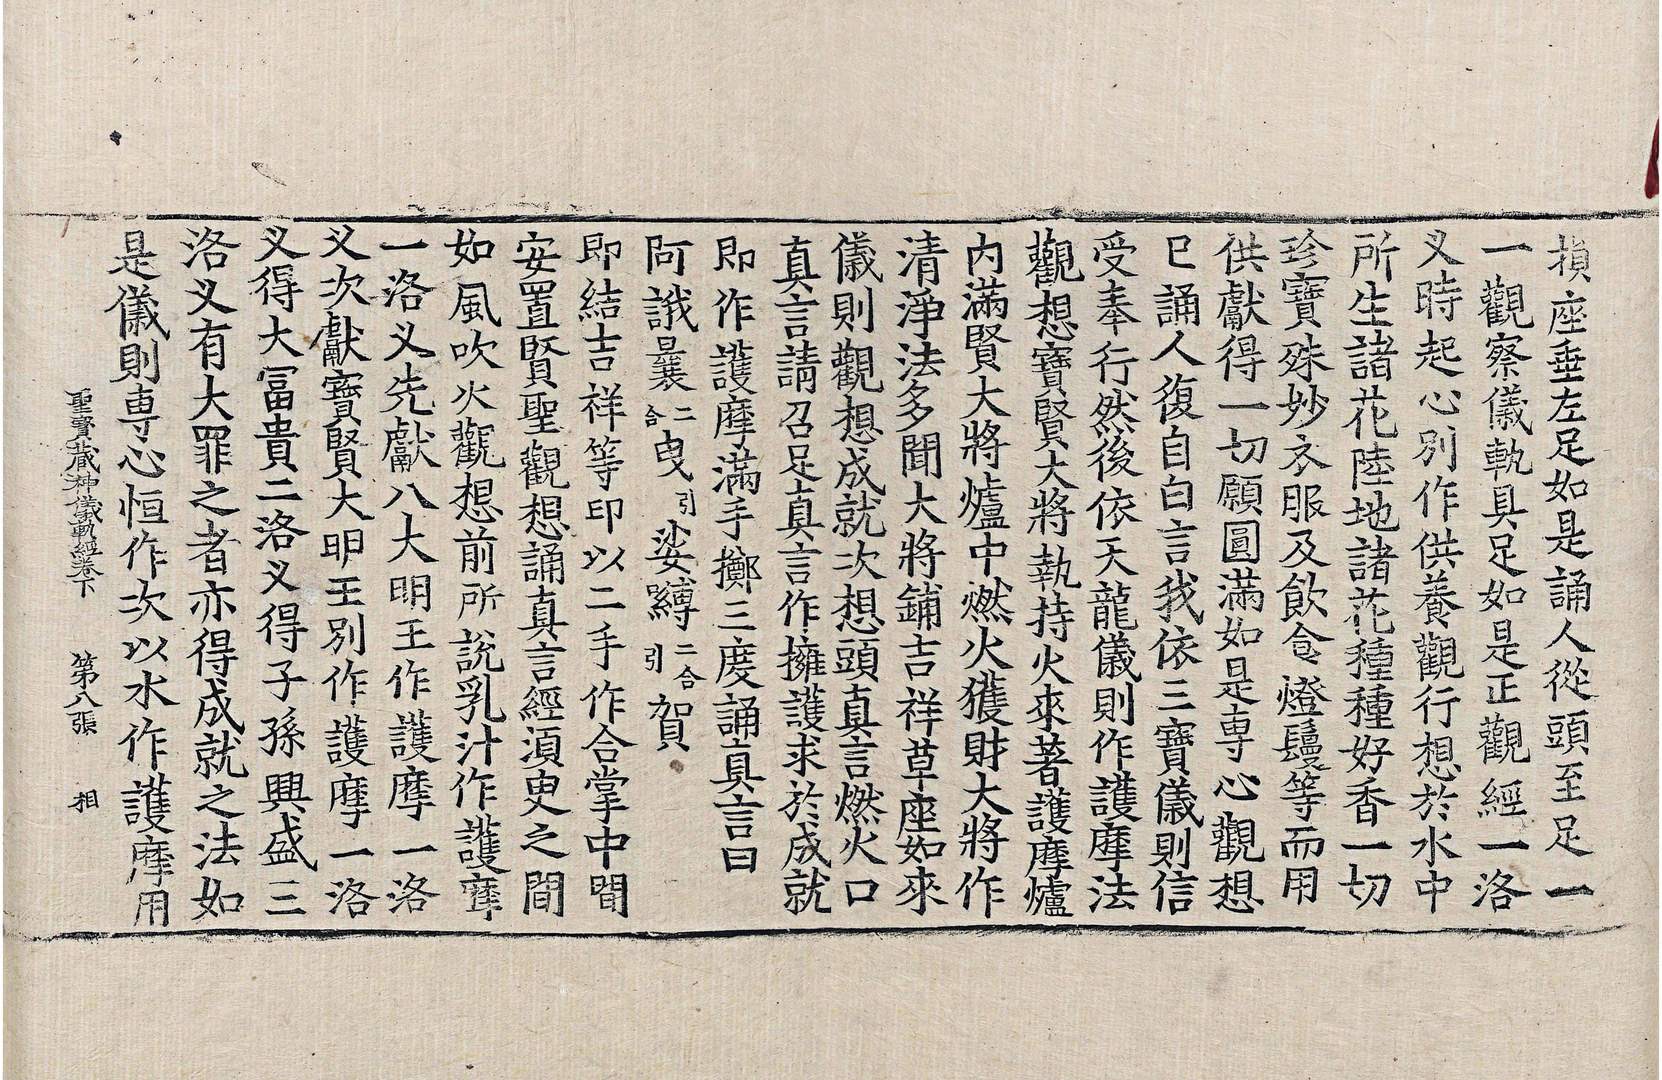 損座垂左足如是誦人從頭至足一
一觀察儀軌具足如是正觀經一洛
义時起心別作供養觀行想於水中
所生諸花陸地諸花種種好香一切
珍寶殊妙衣服及飲食燈鬘等而用
供獻得一切願圓滿如是専心觀想
巳誦人復自白言我依三寶儀則信
受奉行然後依天龍儀則作護摩法
觀想寶賢大將執持火來著護摩爐
内滿賢大將爐中燃火獲財大將作
清淨法多聞大將鋪吉祥草座如來
儀則觀想成就次想頭真言燃火口
真言請召足真言作擁護求於成就
即作護摩滿手擲三度誦真言曰
阿誐曩二合曳引娑嚩二合引賀
即結吉祥等印以二手作合掌中間
安置賢聖觀想誦真言經須臾之間
如風吹火觀想前所說乳汁作護摩
一洛义先獻八大明王作護摩一洛
义次獻寶賢大明王別作護摩一洛
义得大冨貴二洛义得子孫興盛三
洛义有大罪之者亦得成就之法如
是儀則専心恒作次以水作護摩用
聖寶藏神儀軌經卷下 第八張 相